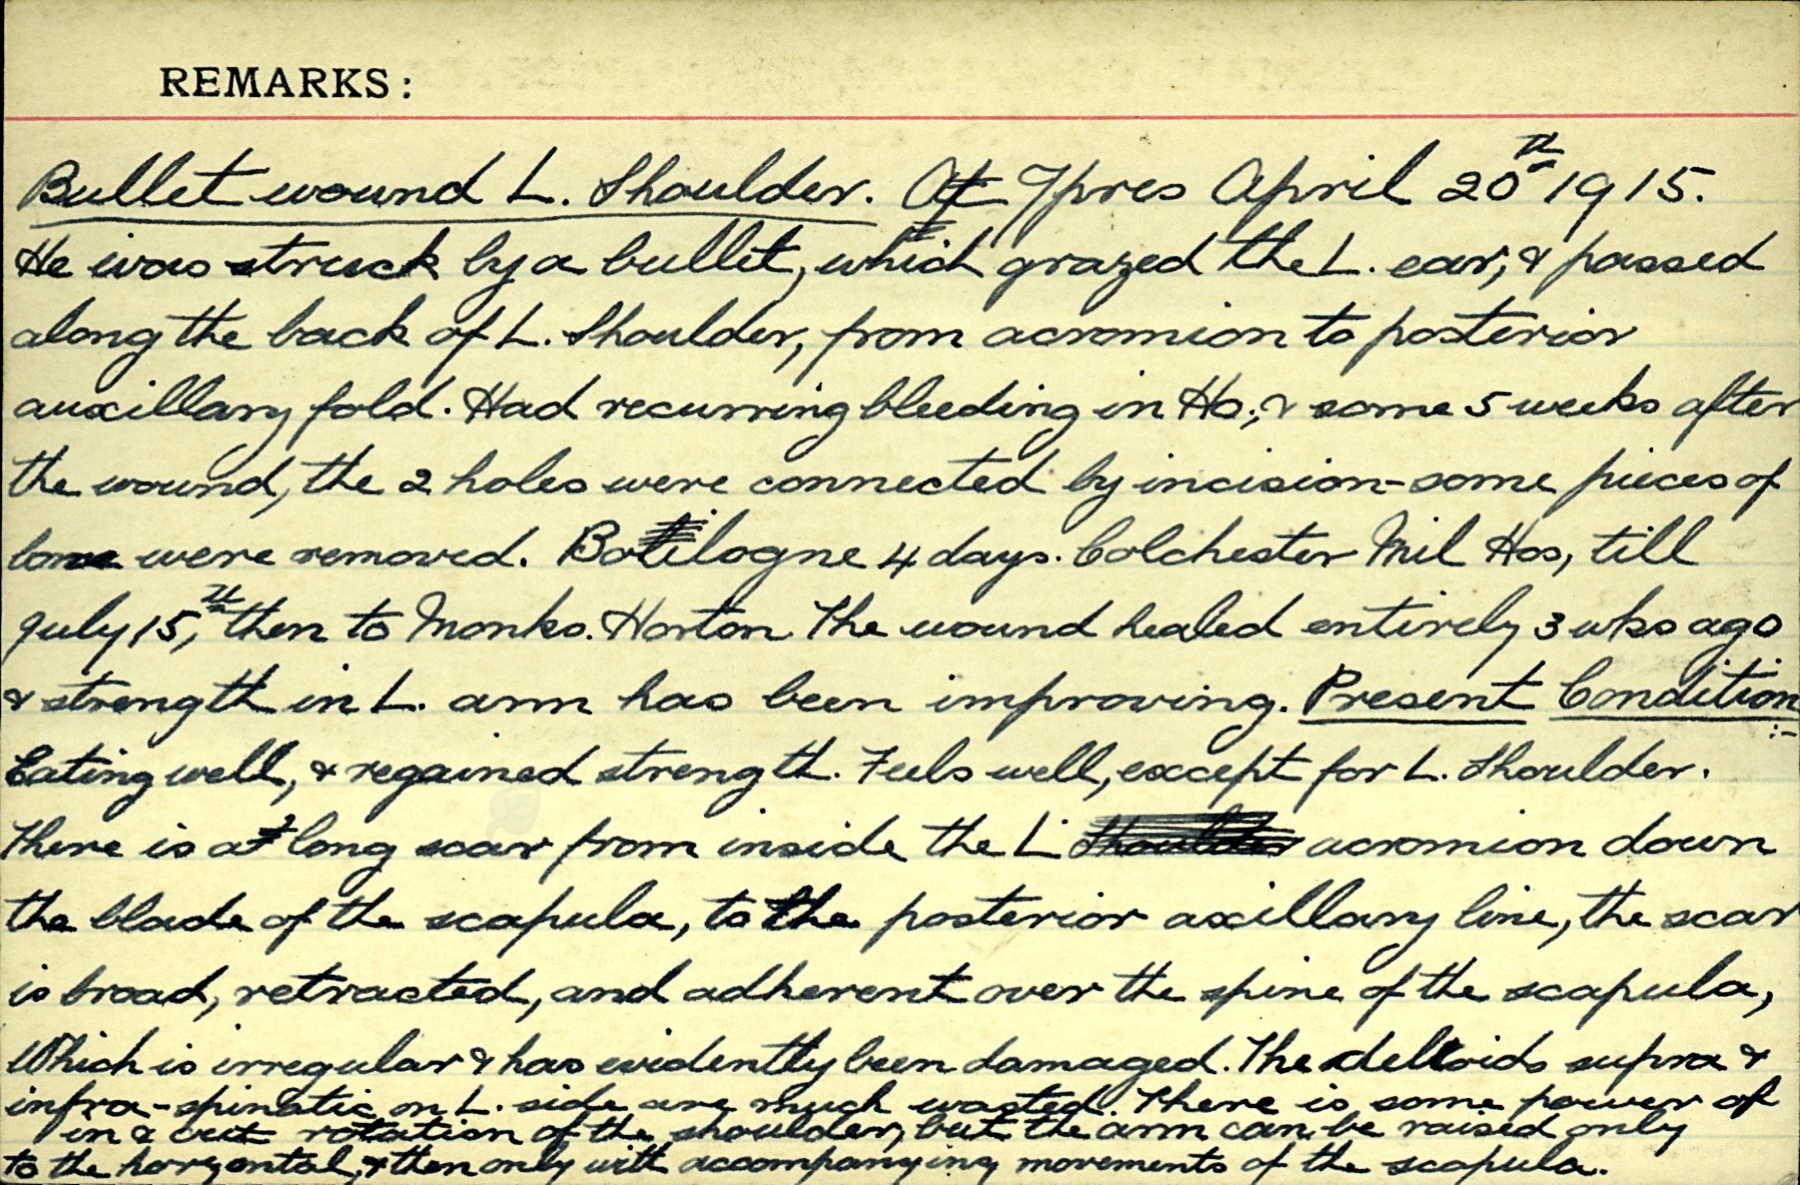 REMARKS:
Bullet wound L. Shoulder. At Ypres April 20th 1915.
He was struck by a bullet, which grazed the L. ear, & passed
along the back of L. Shoulder, from acromion to posterior
auxillary fold. Had recurring bleeding in Ho; & some 5 weeks after
the wound, the 2 holes were connected by incision-some pieces of
bone were removed. Boulogne 4 days. Colchester Mil Hos, till
July 15,th then to Monks. Horton. The wound healed entirely 3 wks ago
& strength in L. arm has been improving. Present Condition
:-
Eating well, & regained strength. Feels well, except for L. Shoulder.
There is a long scar from inside the L. Shoulder acromion down
the blade of the scapula, to the posterior axillary line, the scar
is broad, retracted, and adherent over the spine of the scapula,
Which is irregular & has evidently been damaged. The deltoids supra &
infra-spinatic on L. side are much wasted. There is some power of
in & out rotation of the shoulder, but the arm can be raised only
to the horyontal, & then only with accompanying movements of the scapula.